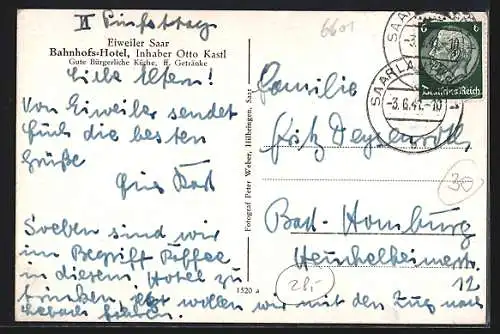 II Pfingsttag
Eiweiler Saar
Bahnhofs-Hotel, Inhaber Otto Kastl
Gute Bürgerliche Küche, ff. Getränke
Liebe Eltern!
Von Eiweiler sendet
Euch die besten
Grüße
Soeben sind wir
im Begriff Kaffee
in diesem Hotel zu
trinken, wollen wir mit den Zug nach
fahren.
Fotograf Peter Weber, Hülbringen, Saar
1520 a
6601
SAARLA
-3.6.41.-10
6
Deutsches Reich
Familie
Fritz
Bad-Homburg
12
30
28,-